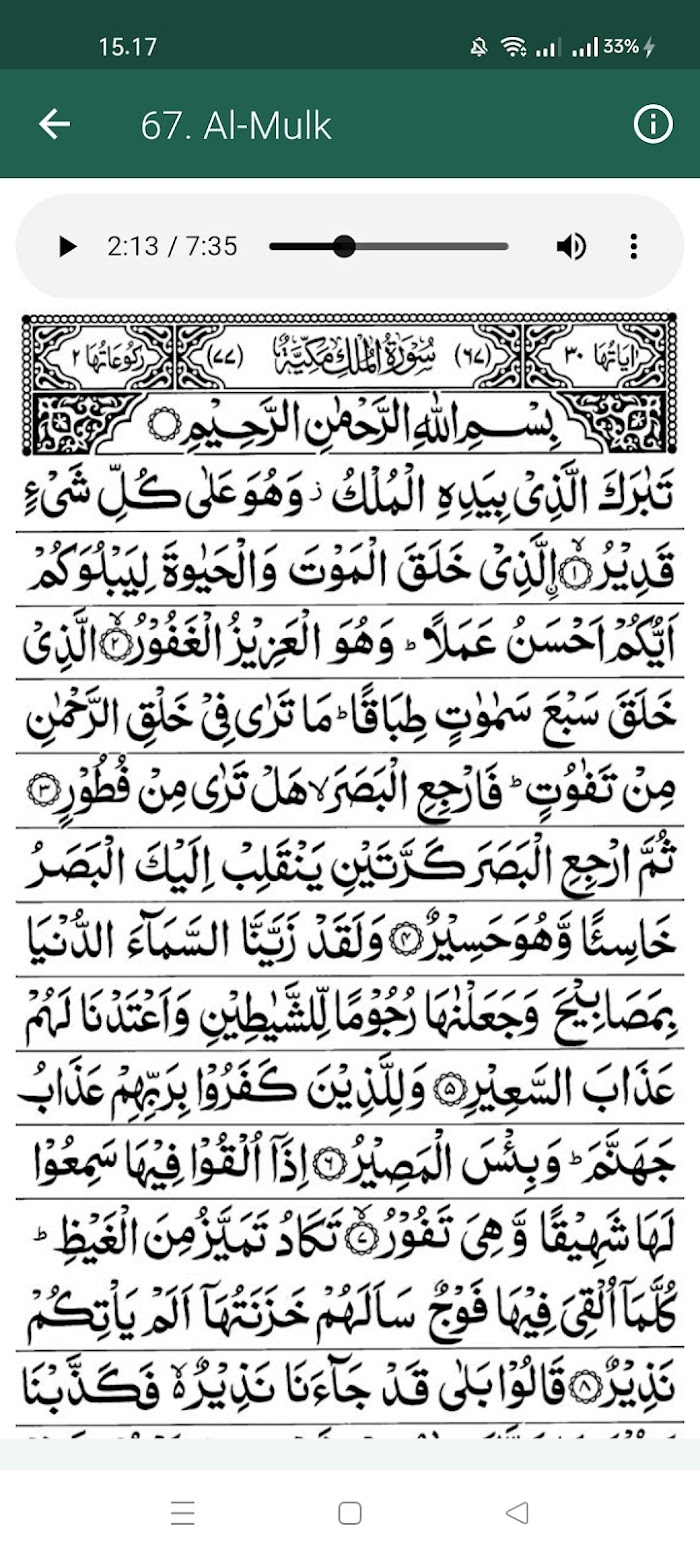 15.17
33%
67. Al-Mulk
2:13 / 7:35
اٰيَاتُهَا ٣٠ (٦٧) سُوْرَةُ الْمُلْكِ مَكِّيَّةٌ (٧٧) رُكُوْعَاتُهَا ٢
بِسْمِ اللّٰهِ الرَّحْمٰنِ الرَّحِيْمِ
تَبٰرَكَ الَّذِىْ بِيَدِهِ الْمُلْكُ ز وَهُوَ عَلٰى كُلِّ شَىْءٍ
قَدِيْرُ ۙ﴿١﴾ اۨلَّذِىْ خَلَقَ الْمَوْتَ وَالْحَيٰوةَ لِيَبْلُوَكُمْ
اَيُّكُمْ اَحْسَنُ عَمَلًا ؕ وَهُوَ الْعَزِيْزُ الْغَفُوْرُ ۙ﴿٢﴾ الَّذِىْ
خَلَقَ سَبْعَ سَمٰوٰتٍ طِبَاقًا ؕ مَا تَرٰى فِىْ خَلْقِ الرَّحْمٰنِ
مِنْ تَفٰوُتٍ ؕ فَارْجِعِ الْبَصَرَ ۙ هَلْ تَرٰى مِنْ فُطُوْرٍ ﴿٣﴾
ثُمَّ ارْجِعِ الْبَصَرَ كَرَّتَيْنِ يَنْقَلِبْ اِلَيْكَ الْبَصَرُ
خَاسِئًا وَّهُوَ حَسِيْرٌ ﴿٤﴾ وَلَقَدْ زَيَّنَّا السَّمَآءَ الدُّنْيَا
بِمَصَابِيْحَ وَجَعَلْنٰهَا رُجُوْمًا لِّلشَّيٰطِيْنِ وَاَعْتَدْنَا لَهُمْ
عَذَابَ السَّعِيْرِ ﴿٥﴾ وَلِلَّذِيْنَ كَفَرُوْا بِرَبِّهِمْ عَذَابُ
جَهَنَّمَ ؕ وَبِئْسَ الْمَصِيْرُ ﴿٦﴾ اِذَآ اُلْقُوْا فِيْهَا سَمِعُوْا
لَهَا شَهِيْقًا وَّهِىَ تَفُوْرُ ۙ﴿٧﴾ تَكَادُ تَمَيَّزُ مِنَ الْغَيْظِ ؕ
كُلَّمَآ اُلْقِىَ فِيْهَا فَوْجٌ سَاَلَهُمْ خَزَنَتُهَآ اَلَمْ يَاْتِكُمْ
نَذِيْرٌ ﴿٨﴾ قَالُوْا بَلٰى قَدْ جَآءَنَا نَذِيْرٌ ۙ۬ فَكَذَّبْنَا